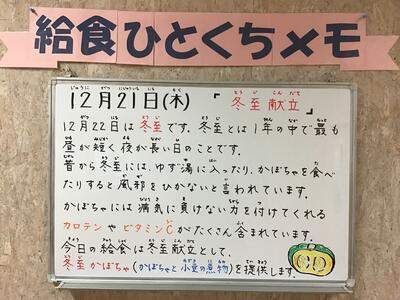 給食ひとくちメモ
12月21日(木) 「冬至献立」
12月22日は冬至です。冬至とは1年の中で最も
昼が短く夜が長い日のことです。
昔から冬至には、ゆず湯に入ったり、かぼちゃを食べ
たりすると風邪をひかないと言われています。
かぼちゃには病気に負けない力を付けてくれる
カロテンやビタミンCがたくさん含まれています。
今日の給食は冬至献立として、
冬至かぼちゃ(かぼちゃと小豆の煮物)を提供します。